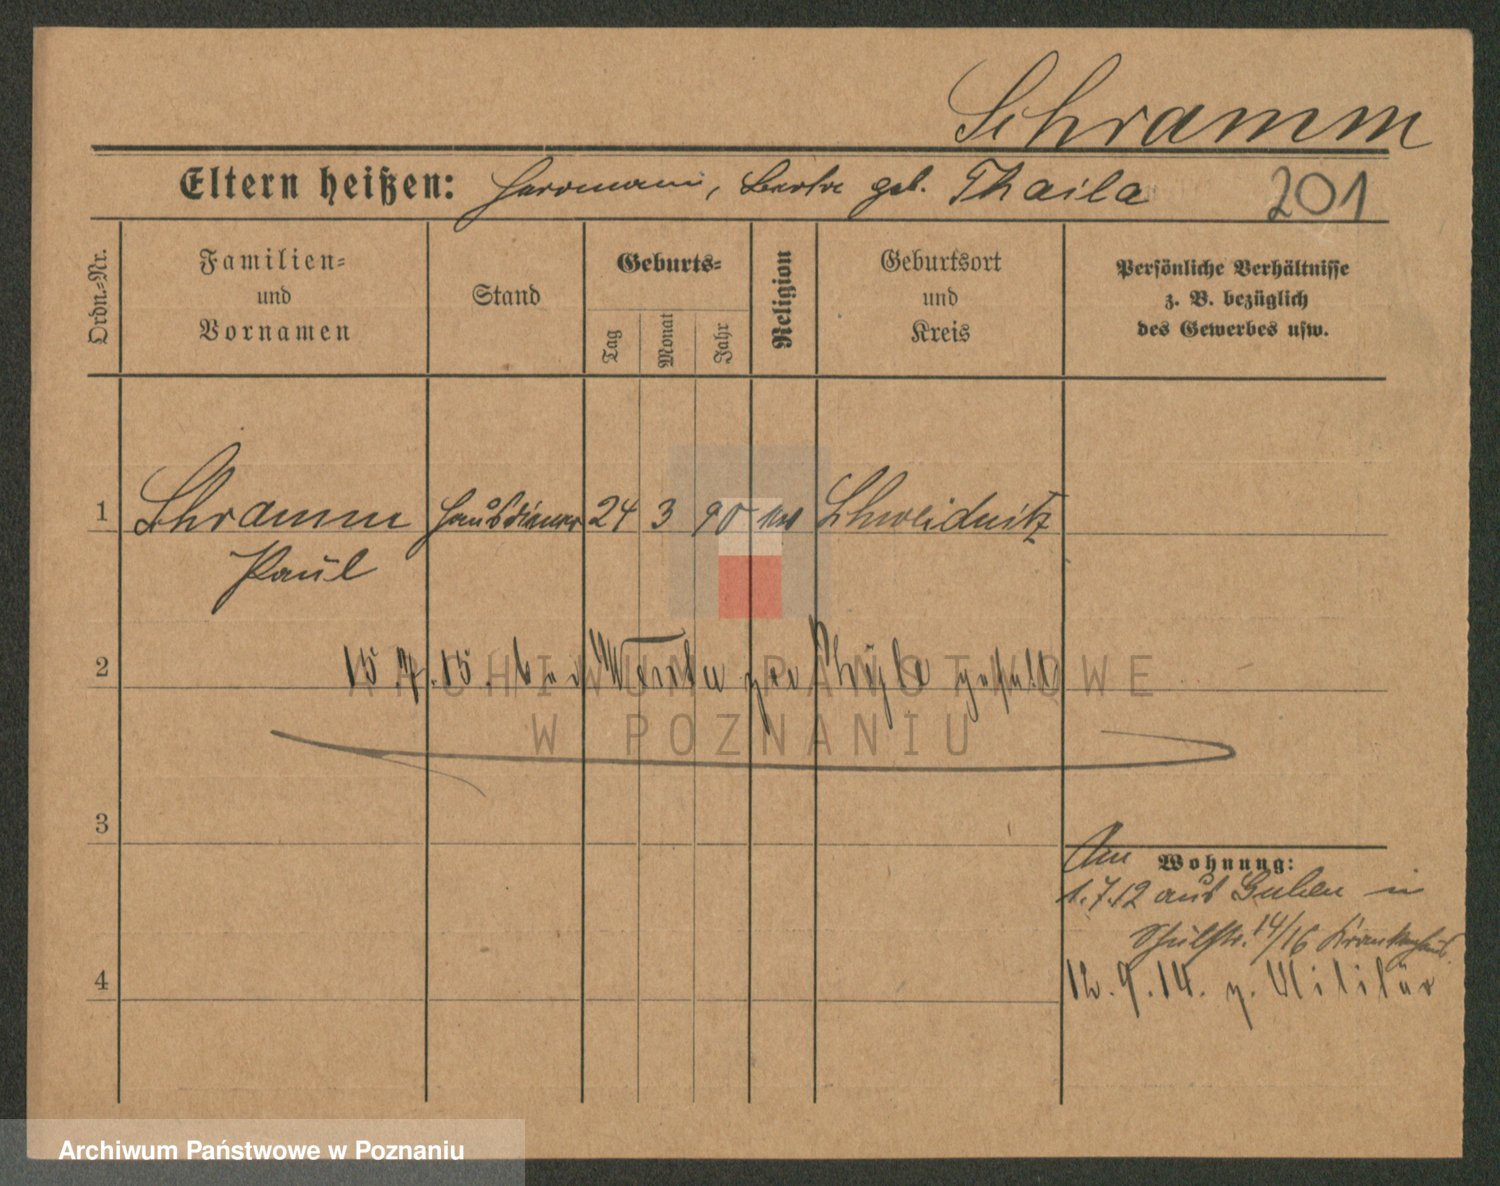 Schramm
Eltern heißen: Hermann, Berta geb. Thaila 201
Ordn.-Nr.
Familien- und Vornamen
Stand
Geburts-
Tag
Monat
Jahr
Religion
Geburtsort und Kreis
Persönliche Verhältnisse
z. B. bezüglich
des Gewerbes usw.
1 Schramm Hausdiener 24 3 90 Schweidnitz
Paul
2 15.7.15.
3
4
Am Wohnung:
1.7.12 aus Guben in
Schulstr. 14/16 Krankenhaus.
12.9.14. z. Militär
ARCHIWUM PAŃSTWOWE
W POZNANIU
Archiwum Państwowe w Poznaniu